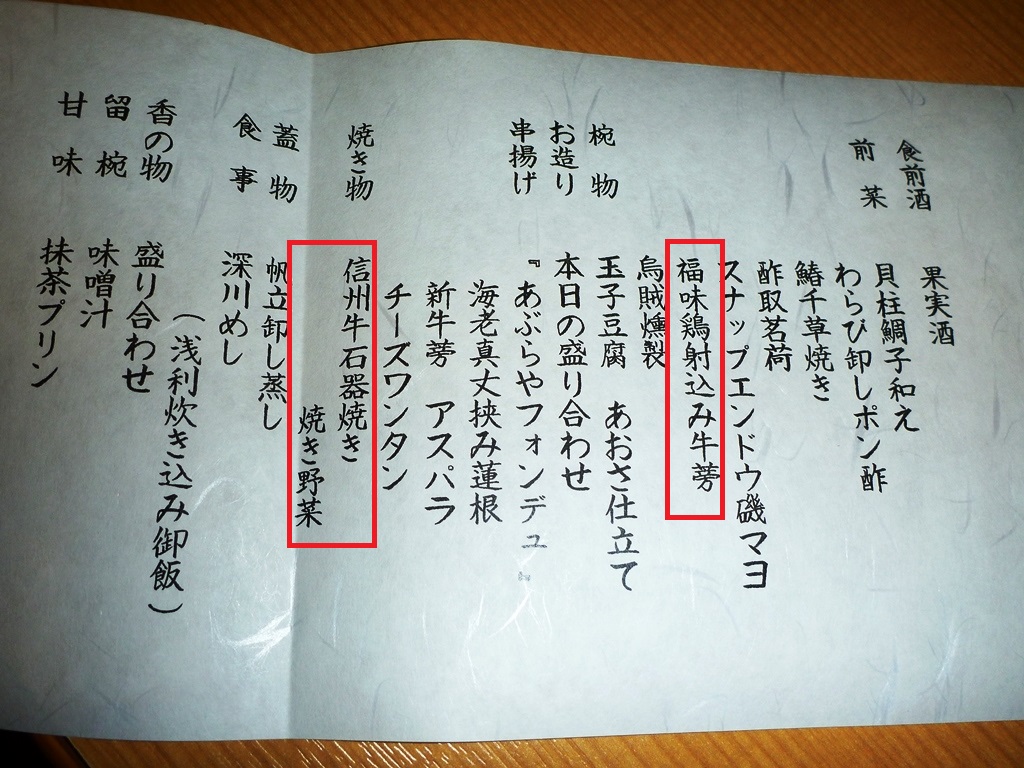 食前酒
果実酒
前菜
貝柱鯛子和え
わらび卸しポン酢
鰆千草焼き
酢取茗荷
スナップエンドウ磯マヨ
福味鶏射込み牛蒡
烏賊燻製
椀物
玉子豆腐 あおさ仕立て
お造り
本日の盛り合わせ
串揚げ
『あぶらやフォンデュ』
海老真丈挟み蓮根
新牛蒡 アスパラ
チーズワンタン
焼き物
信州牛石器焼き
焼き野菜
蓋物
帆立卸し蒸し
食事
深川めし
(浅利炊き込み御飯)
香の物
盛り合わせ
留椀
味噌汁
甘味
抹茶プリン